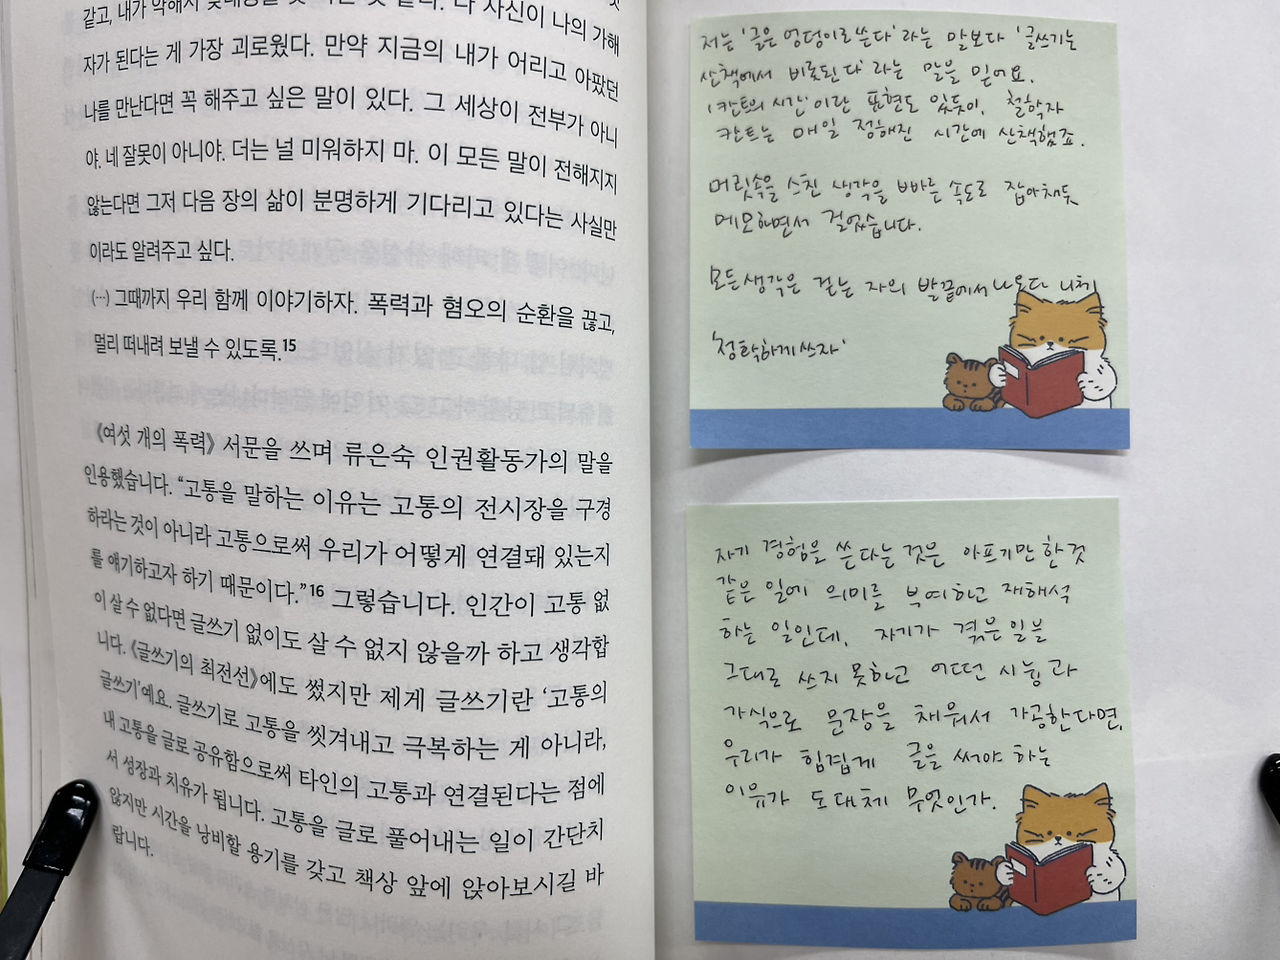 같고, 내가 약해서
자가 된다는 게 가장 괴로웠다. 만약 지금의 내가 어리고 아팠던
나를 만난다면 꼭 해주고 싶은 말이 있다. 그 세상이 전부가 아니
야. 네 잘못이 아니야. 더는 널 미워하지 마. 이 모든 말이 전해지지
않는다면 그저 다음 장의 삶이 분명하게 기다리고 있다는 사실만
이라도 알려주고 싶다.
(…) 그때까지 우리 함께 이야기하자. 폭력과 혐오의 순환을 끊고,
멀리 떠내려 보낼 수 있도록.15
《여섯 개의 폭력》 서문을 쓰며 류은숙 인권활동가의 말을
인용했습니다. “고통을 말하는 이유는 고통의 전시장을 구경
하라는 것이 아니라 고통으로써 우리가 어떻게 연결돼 있는지
를 얘기하고자 하기 때문이다.”16 그렇습니다. 인간이 고통 없
이 살 수 없다면 글쓰기 없이도 살 수 없지 않을까 하고 생각합
니다. 《글쓰기의 최전선》에도 썼지만 제게 글쓰기란 ‘고통의
글쓰기’예요. 글쓰기로 고통을 씻겨내고 극복하는 게 아니라,
내 고통을 글로 공유함으로써 타인의 고통과 연결된다는 점에
서 성장과 치유가 됩니다. 고통을 글로 풀어내는 일이 간단치
않지만 시간을 낭비할 용기를 갖고 책상 앞에 앉아보시길 바
랍니다.
저는 '글은 엉덩이로 쓴다'라는 말보다 '글쓰기는
산책에서 비롯된다'라는 말을 믿어요.
'칸트의 시간'이란 표현도 있듯이, 철학자
칸트는 매일 정해진 시간에 산책했죠.
머릿속을 스친 생각을 빠른 속도로 잡아채듯
메모하면서 걸었습니다.
모든 생각은 걷는 자의 발끝에서 나온다 니체
'정확하게 쓰자'
자기 경험을 쓴다는 것은 아프기만 한 것
같은 일에 의미를 부여하고 재해석
하는 일인데, 자기가 겪은 일을
그대로 쓰지 못하고 어떤 시늉과
가식으로 문장을 채워서 가공한다면,
우리가 힘겹게 글을 써야 하는
이유가 도대체 무엇인가.